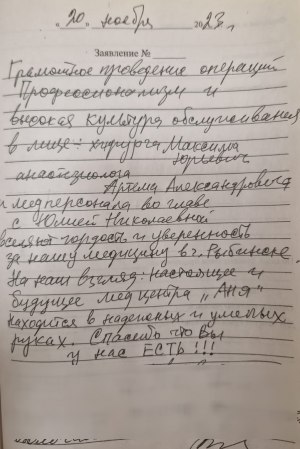 "20" ноября 2023г.
Заявление №
Грамотное проведение операций
Профессионализм и
высокая культура обслуживания
в лице: хирурга Максима
Юрьевич
анастезиолога
Артема Александровича
и медперсонала во главе
с Юлией Николаевной
вселяют гордость и уверенность
за нашу медицину в г. Рыбинске.
На наш взгляд: настоящее и
будущее медцентра „Аня"
находится в надежных и умелых
руках. Спасибо что Вы
у нас ЕСТЬ!!!